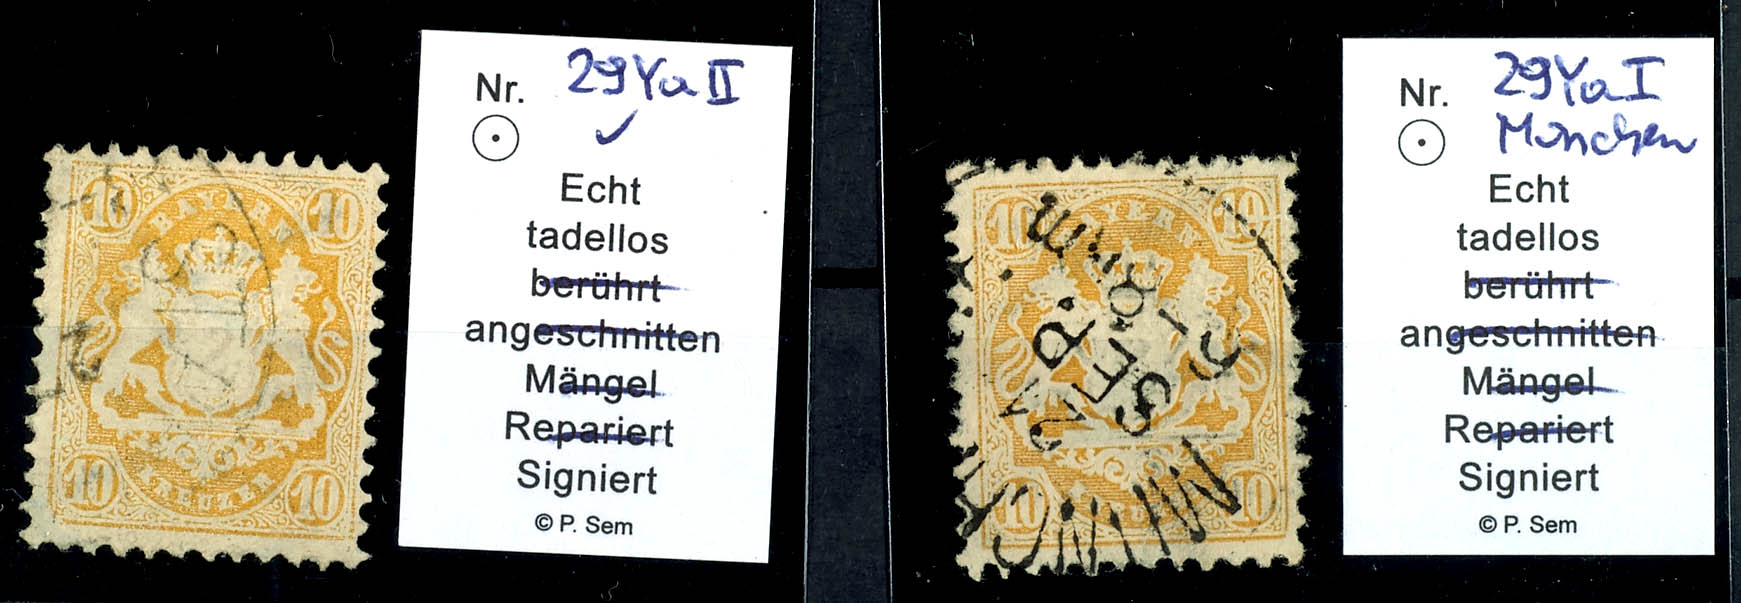 10 10
BAYERN
10 10
KREUZER
Nr. 29Ya II
Echt
tadellos
berührt
angeschnitten
Mängel
Repariert
Signiert
© P. Sem
10 10
BAYERN
SEP.
10 10
Nr. 29Ya I
München
Echt
tadellos
berührt
angeschnitten
Mängel
Repariert
Signiert
© P. Sem